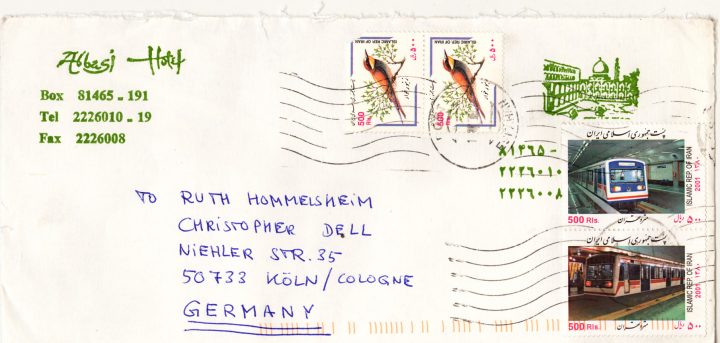 Abbasi Hotel
Box 81465 - 191
Tel 2226010 - 19
Fax 2226008
ISLAMIC REP. OF IRAN
۵۰۰ ریال
500 Rls.
ISLAMIC REP. OF IRAN
۵۰۰ ریال
500 Rls.
۸۱۴۶۵-
۲۲۲۶۰۱۰
۲۲۲۶۰۰۸
پست جمهوری اسلامی ایران
ISLAMIC REP. OF IRAN
2001 ۱۳۸۰
500 Rls.
مترو تهران
۵۰۰ ریال
پست جمهوری اسلامی ایران
ISLAMIC REP. OF IRAN
2001 ۱۳۸۰
500 Rls.
مترو تهران
۵۰۰ ریال
TO RUTH HOMMELSHEIM
CHRISTOPHER DELL
NIEHLER STR. 35
50733 KÖLN/COLOGNE
GERMANY